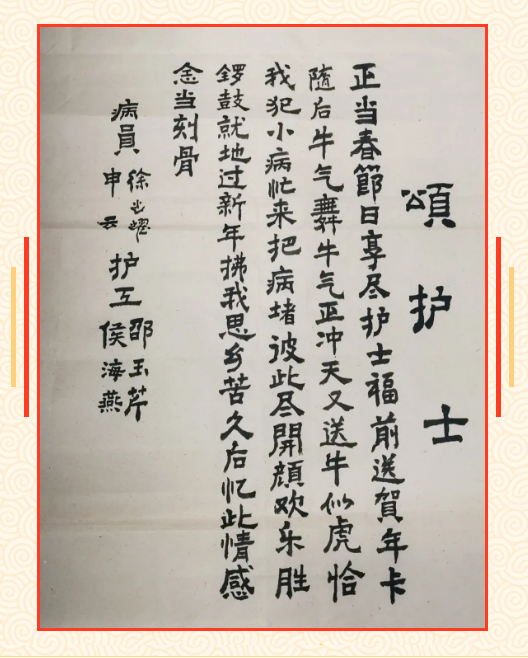 頌护士
正当春節日享尽护士福前送賀年卡
随后牛气舞牛气正冲天又送牛似虎恰
我犯小病忙来把病堵彼此尽開顔欢乐胜
锣鼓就地过新年拂我思乡苦久后忆此情感
念当刻骨
病員
徐 耀
申云
护工
邵玉芹
侯海燕